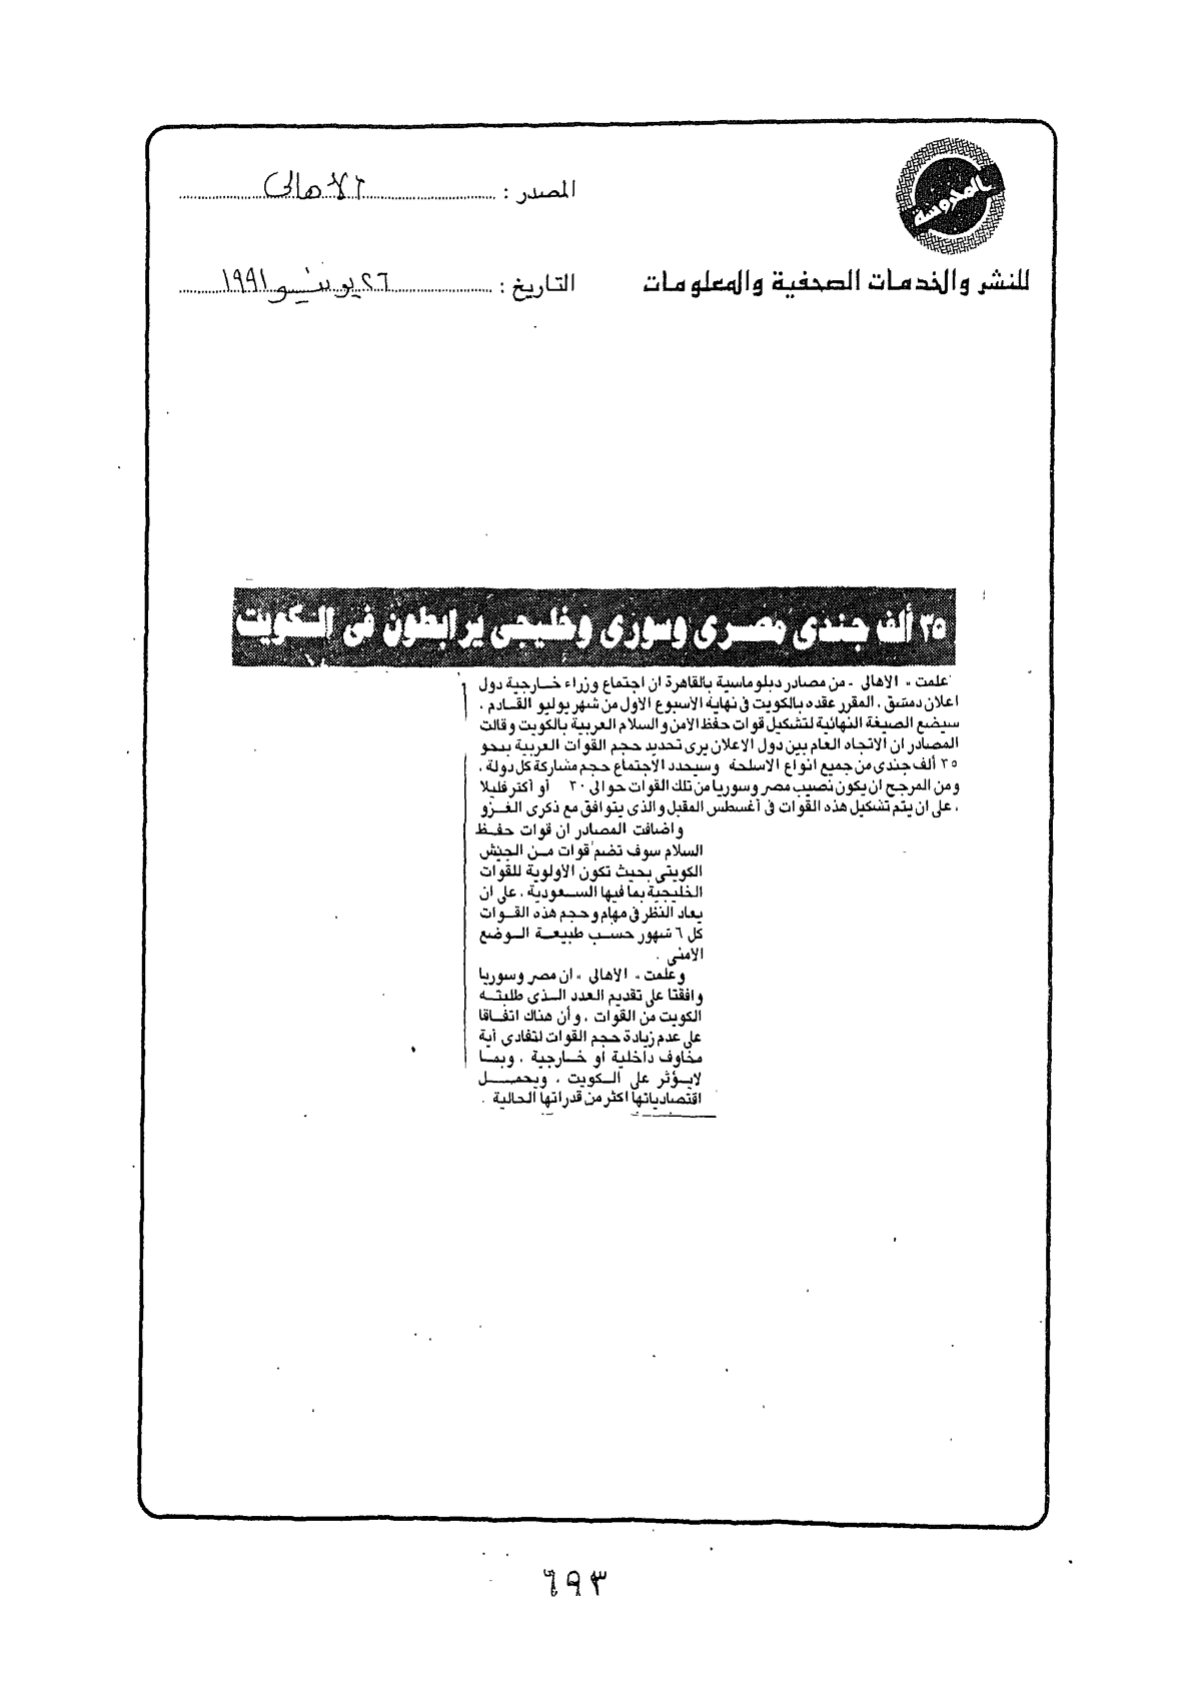 المحروسة
المصدر : الأهالى
للنشر والخدمات الصحفية والمعلومات
التاريخ : ٢٦ يونيو ١٩٩١
٣٥ ألف جندى مصرى وسورى وخليجى يرابطون فى الكويت
علمت « الأهالى » من مصادر دبلوماسية بالقاهرة ان اجتماع وزراء خارجية دول
اعلان دمشق ، المقرر عقده بالكويت فى نهاية الأسبوع الأول من شهر يوليو القادم ،
سيضع الصيغة النهائية لتشكيل قوات حفظ الأمن والسلام العربية بالكويت وقالت
المصادر ان الاتجاه العام بين دول الاعلان يرى تحديد حجم القوات العربية بنحو
٣٥ ألف جندى من جميع انواع الاسلحة وسيحدد الاجتماع حجم مشاركة كل دولة ،
ومن المرجح ان يكون نصيب مصر وسوريا من تلك القوات حوالى ٣٠ أو أكثر قليلا
، على ان يتم تشكيل هذه القوات فى أغسطس المقبل والذى يتوافق مع ذكرى الغزو
واضافت المصادر ان قوات حفظ
السلام سوف تضم قوات من الجيش
الكويتى بحيث تكون الأولوية للقوات
الخليجية بما فيها السعودية ، على ان
يعاد النظر فى مهام وحجم هذه القوات
كل ٦ شهور حسب طبيعة الوضع
الامنى .
وعلمت « الأهالى » ان مصر وسوريا
وافقتا على تقديم العدد الذى طلبته
الكويت من القوات ، وأن هناك اتفاقا
على عدم زيادة حجم القوات لتفادى أية
مخاوف داخلية أو خارجية ، وبما
لايؤثر على الكويت ، ويحمل
اقتصادياتها اكثر من قدراتها الحالية .
٦٩٣